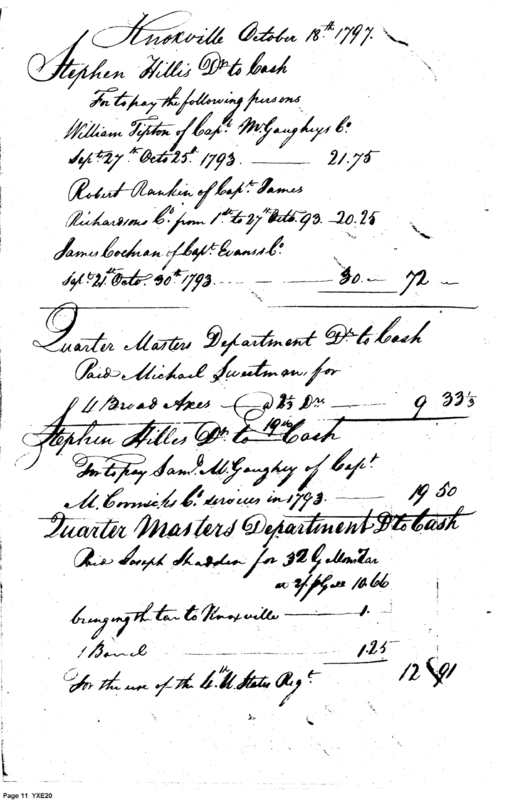 Knoxville October 18th 1797.
Stephen Hillis Dr. to Cash
For to pay the following persons
William Tipton of Capt. McGaugheys Co.
Sept. 27th Octo 25th 1793. 21.75
Robert Rankin of Capt. James
Richardsons Co. from 1st to 27th Octo. 93 - 20.25
James Cochran of Capt. Evans's Co.
Sept. 21st Octo. 30th 1793. 30 72
Quarter Masters Department Dr. to Cash
Paid Michael Sweetman for
4 Broad Axes @ 2 1/3 Drs 9 33 1/3
19th
Stephen Hilles Dr. to Cash
For to pay Saml. McGaughey of Capt.
McCormicks Co. services in 1793. 19 50
Quarter Masters Department Dr to Cash
Paid Joseph Shadden for 32 Gallons Tar
at 2/ p Gall 10.66
bringing the tar to Knoxville 1.
1 Barrel 1.25
For the use of the 4th U. States Regt. 12 91
Page 11 YXE20